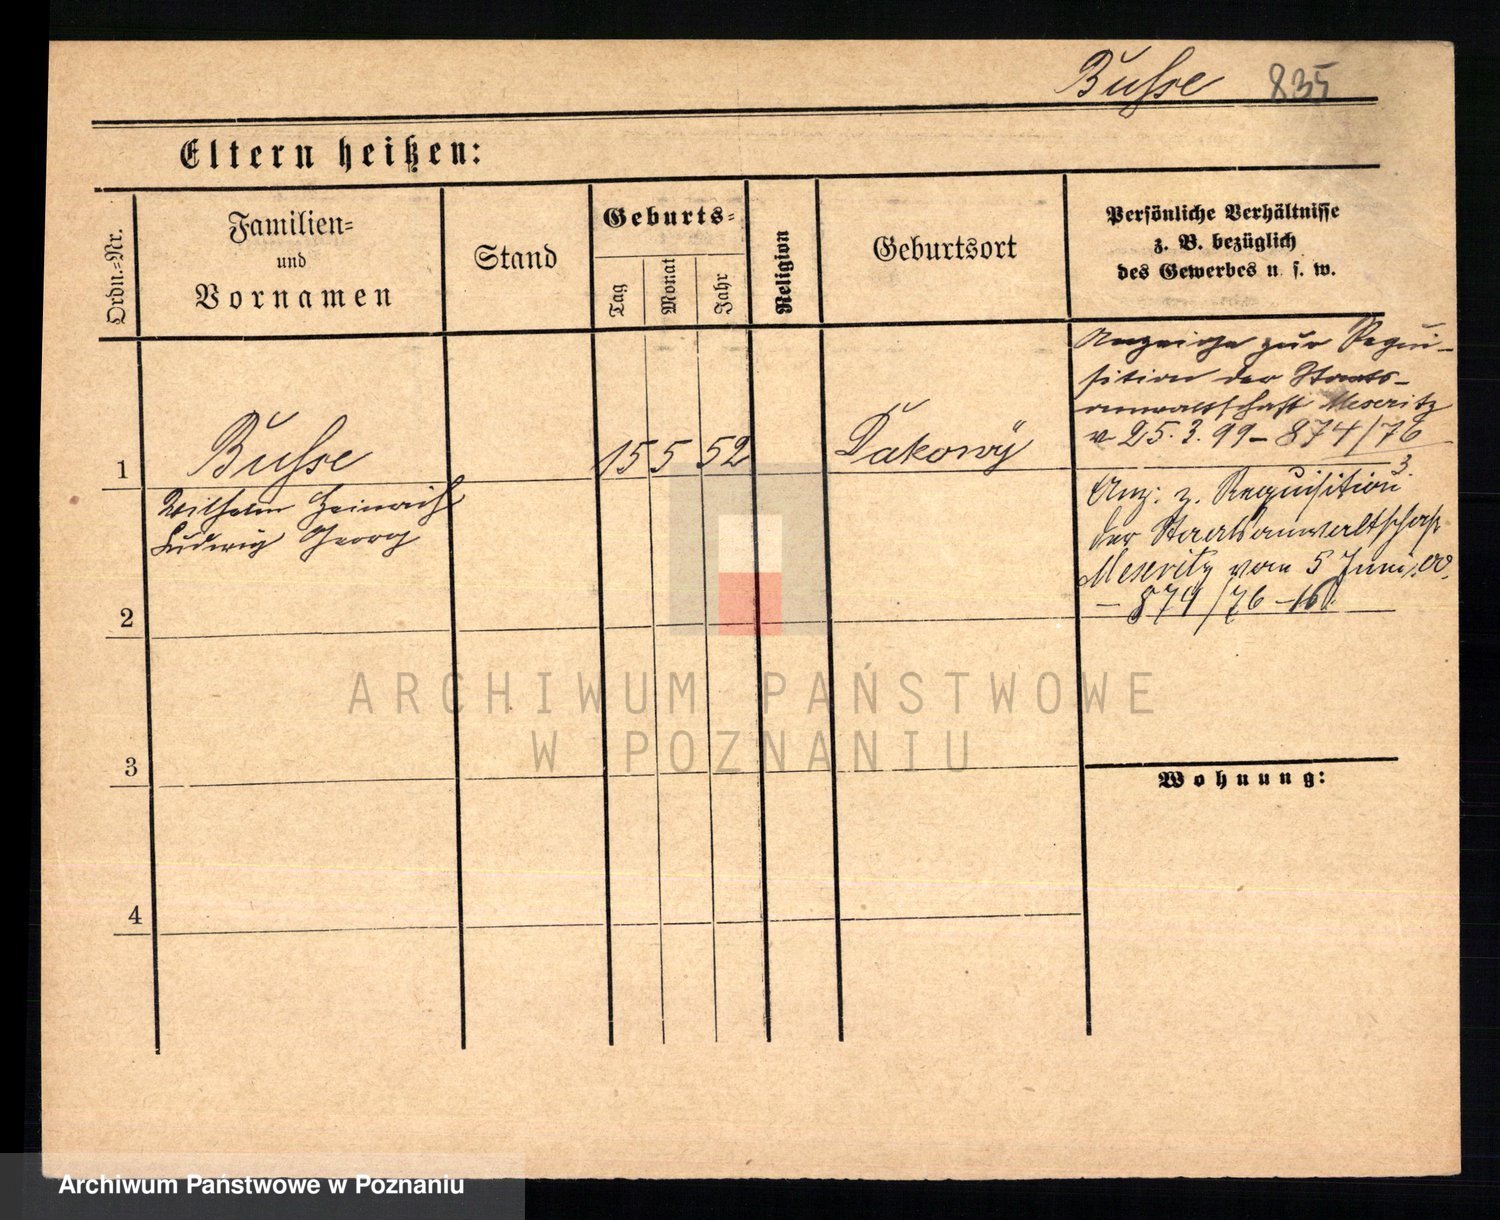 Busse 835
Eltern heißen:
Ordn.-Nr.
Familien-
und
Vornamen
Stand
Geburts-
Tag
Monat
Jahr
Religion
Geburtsort
Persönliche Verhältnisse
z. B. bezüglich
des Gewerbes u. s. w.
1
Busse
15 5 52
Dakowÿ
Wilhelm Heinrich
Ludwig Georg
Anzeige zur Requi-
sition der Staats-
anwaltschaft Meseritz
v 25.3.99 - 874/76
3.
Anz. z. Requisition
der Staatsanwaltschaft
Meseritz vom 5 Juni
- 874/76 - 16.
2
3
4
Wohnung:
ARCHIWUM PAŃSTWOWE
W POZNANIU
Archiwum Państwowe w Poznaniu